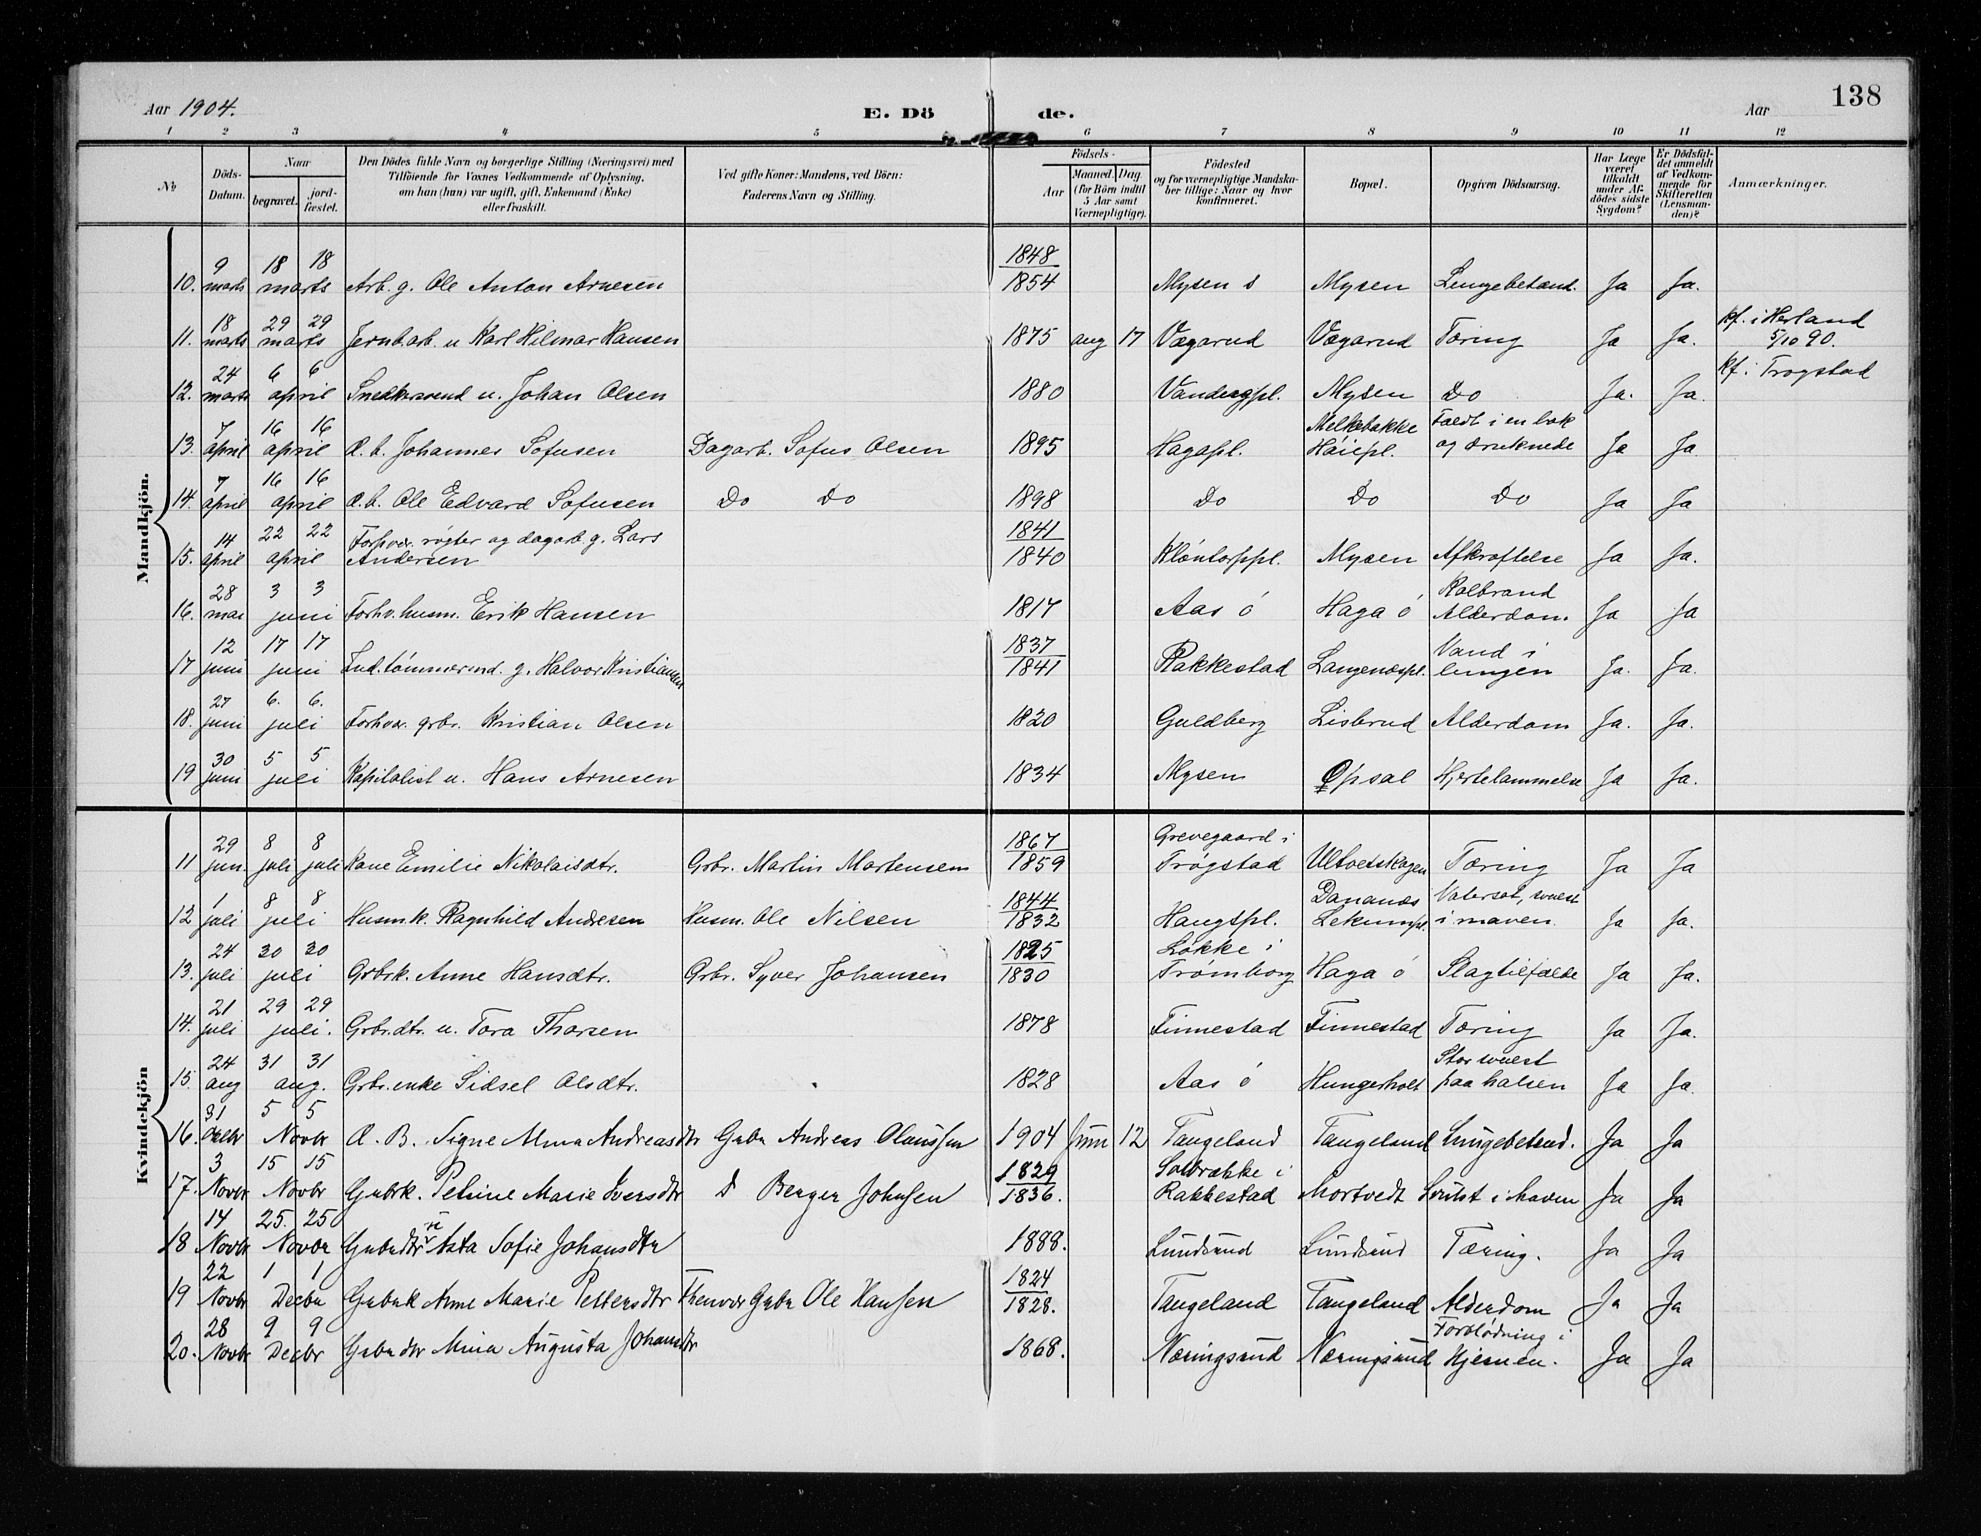 Aar 1904. E. Dö de. Aar 138
1 2 3 4 5 6 7 8 9 10 11 12
No
Döds-Datum.
Naar
begravet.
jord-fæstet.
Den Dödes fulde Navn og borgerlige Stilling (Næringsvei) med
Tilföiende for Voxnes Vedkommende af Oplysning,
om han (hun) var ugift, gift, Enkemand (Enke)
eller fraskilt.
Ved gifte Koner: Mandens, ved Börn:
Faderens Navn og Stilling.
Födsels-
Aar
Maaned. Dag.
(for Börn indtil
5 Aar samt
Værnepligtige).
Födested
og for værnepligtige Mandska-
ber tillige: Naar og hvor
konfirmeret.
Bopæl.
Opgiven Dödsaarsag.
Har Læge
været
tilkaldt
under Af-
dödes sidste
Sygdom?
Er Dödsfal-
det anmeldt
af Vedkom-
mende for
Skifteretten
(Lensman-
den)?
Anmærkninger.
Mandkjön.
9 18 18 1848
10. marts marts Arb. g. Ole Anton Arnesen 1854 Mysen s Mysen Lungebetænd. Ja Ja.
18 29 29 kf. i Herland
11. marts marts Jernb.arb. u Karl Hilmar Hansen 1875 aug 17 Vægarud Vægarud Tæring Ja Ja. 5/10 90.
24 6 6 kf. i Trøgstad
12. marts april Snekkersvend u. Johan Olsen 1880 Vandeugpl. Mysen Do Ja. Ja.
7 16 16 Melkebakke Faldt i en bæk
13. april april Æ. b. Johannes Sofusen Dagarb. Sofus Olsen 1895 Hagapl. Høiepl. og druknede Ja Ja
7 16 16
14. april april Æ. b. Ole Edvard Sofusen Do Do 1898 Do Do Do Ja Ja
14 22 22 Forhvær. røgter og dagarb. g. Lars 1841
15. april april Andersen 1840 Kløntorppl. Mysen Afkræftelse Ja Ja.
28 3 3 Kolbrand
16. mai juni Forhv. husm. Erik Hansen 1817 Aas ø Haga ø Alderdom Ja Ja
12 17 17 1837 Vand i
17 juni juni Ind. tømmermd. g. Halvor Kristiansen 1841 Rakkestad Langenæspl. lungen Ja. Ja.
27 6. 6.
18. juni juli Forhvær. grbr. Kristian Olsen 1820 Guldberg Lisbrud Alderdom Ja. Ja.
30 5 5
19 juni juli Kapitalist u. Hans Arnesen 1834 Mysen Opsal Hjertelammelse Ja Ja.
Kvindekjön
29 8 8 1867 Grevegaard i
11 jun. juli juli Kone Emilie Nikolaisdtr. Grbr. Martin Mortensen 1859 Trøgstad Ultvetskogen Tæring Ja Ja
1 8 8 1844 Dananæs Vatersot, svulst
12 juli juli Husmk. Ragnhild Andresen Husm. Ole Nilsen 1832 Haugspl. Lekumpl. i maven. Ja Ja.
24 30 30 1825 Løkke i
13. juli juli Grbrk. Anne Hansdtr. Grbr. Syver Johansen 1830 Trømborg Haga ø Slagtilfælde Ja Ja.
21 29 29
14. juli juli. Grbr.dtr. u. Tora Thorsen 1878 Finnestad Finnestad Tæring Ja Ja.
24 31 31 Stor svulst
15 aug aug. Grbr.enke Sidsel Olsdtr. 1828 Aas ø Hungerholt paa halsen Ja Ja.
31 5 5
16. Octbr Novbr Æ. B. Signe Alma Andreasdtr Gubr Andreas Olaussen 1904 Juni 12 Tangeland Tangeland Lungebetænd. Ja Ja
3 15 15 1829 Solbrække i
17. Novbr Novbr Gubrk. Petrine Marie Iversdtr D Berger Johnsen 1836. Rakkestad Mortvedt Svulst i Maven Ja Ja
14 25. 25 u
18 Novbr Novbr Gubrdtr Asta Sofie Johansdtr 1888. Lundsrud Lundsrud Tæring. Ja Ja
22 1 1 1824
19 Novbr Decbr Gubrk Anne Marie Pettersdtr Forhenvær Gubr Ole Hansen 1828. Tangeland Tangeland Alderdom Ja Ja
28 9 9 Forblødning i
20. Novbr Decbr Gubrdtr Mina Augusta Johansdtr 1868. Næringsrud Næringsrud Hjernen. Ja Ja